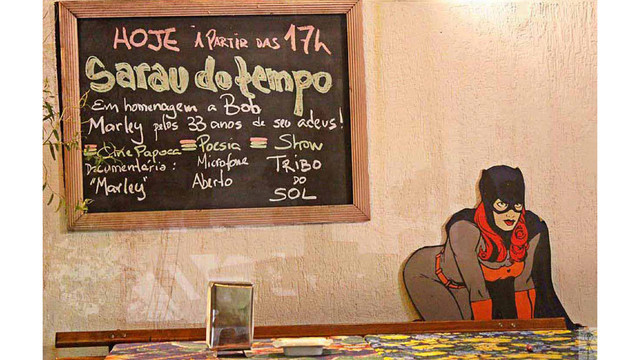 HOJE A PARTIR DAS 17h
Sarau do tempo
Em homenagem a Bob
Marley pelos 33 anos de seu adeus!
Cine Papoca
Documentário:
"Marley"
Poesia
Microfone
Aberto
Show
TRIBO
DO
SOL